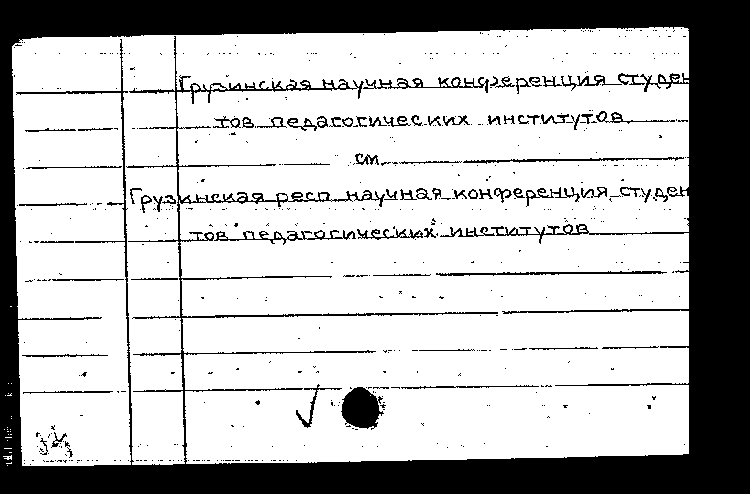 Грузинская научная конференция студен
тов педагогических институтов
см.
Грузинская респ. научная конференция студен
тов педагогических институтов